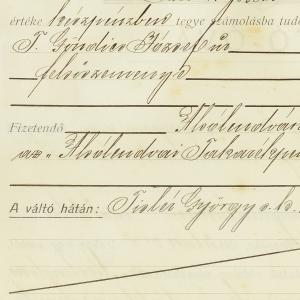 értéke készpénzben tegye számolásba tudó
T. Göndics József úr
felsőszemenye
Fizetendő Alsólendván
az „Alsólendvai Takarékpén
A váltó hátán: Tivler György s. k.